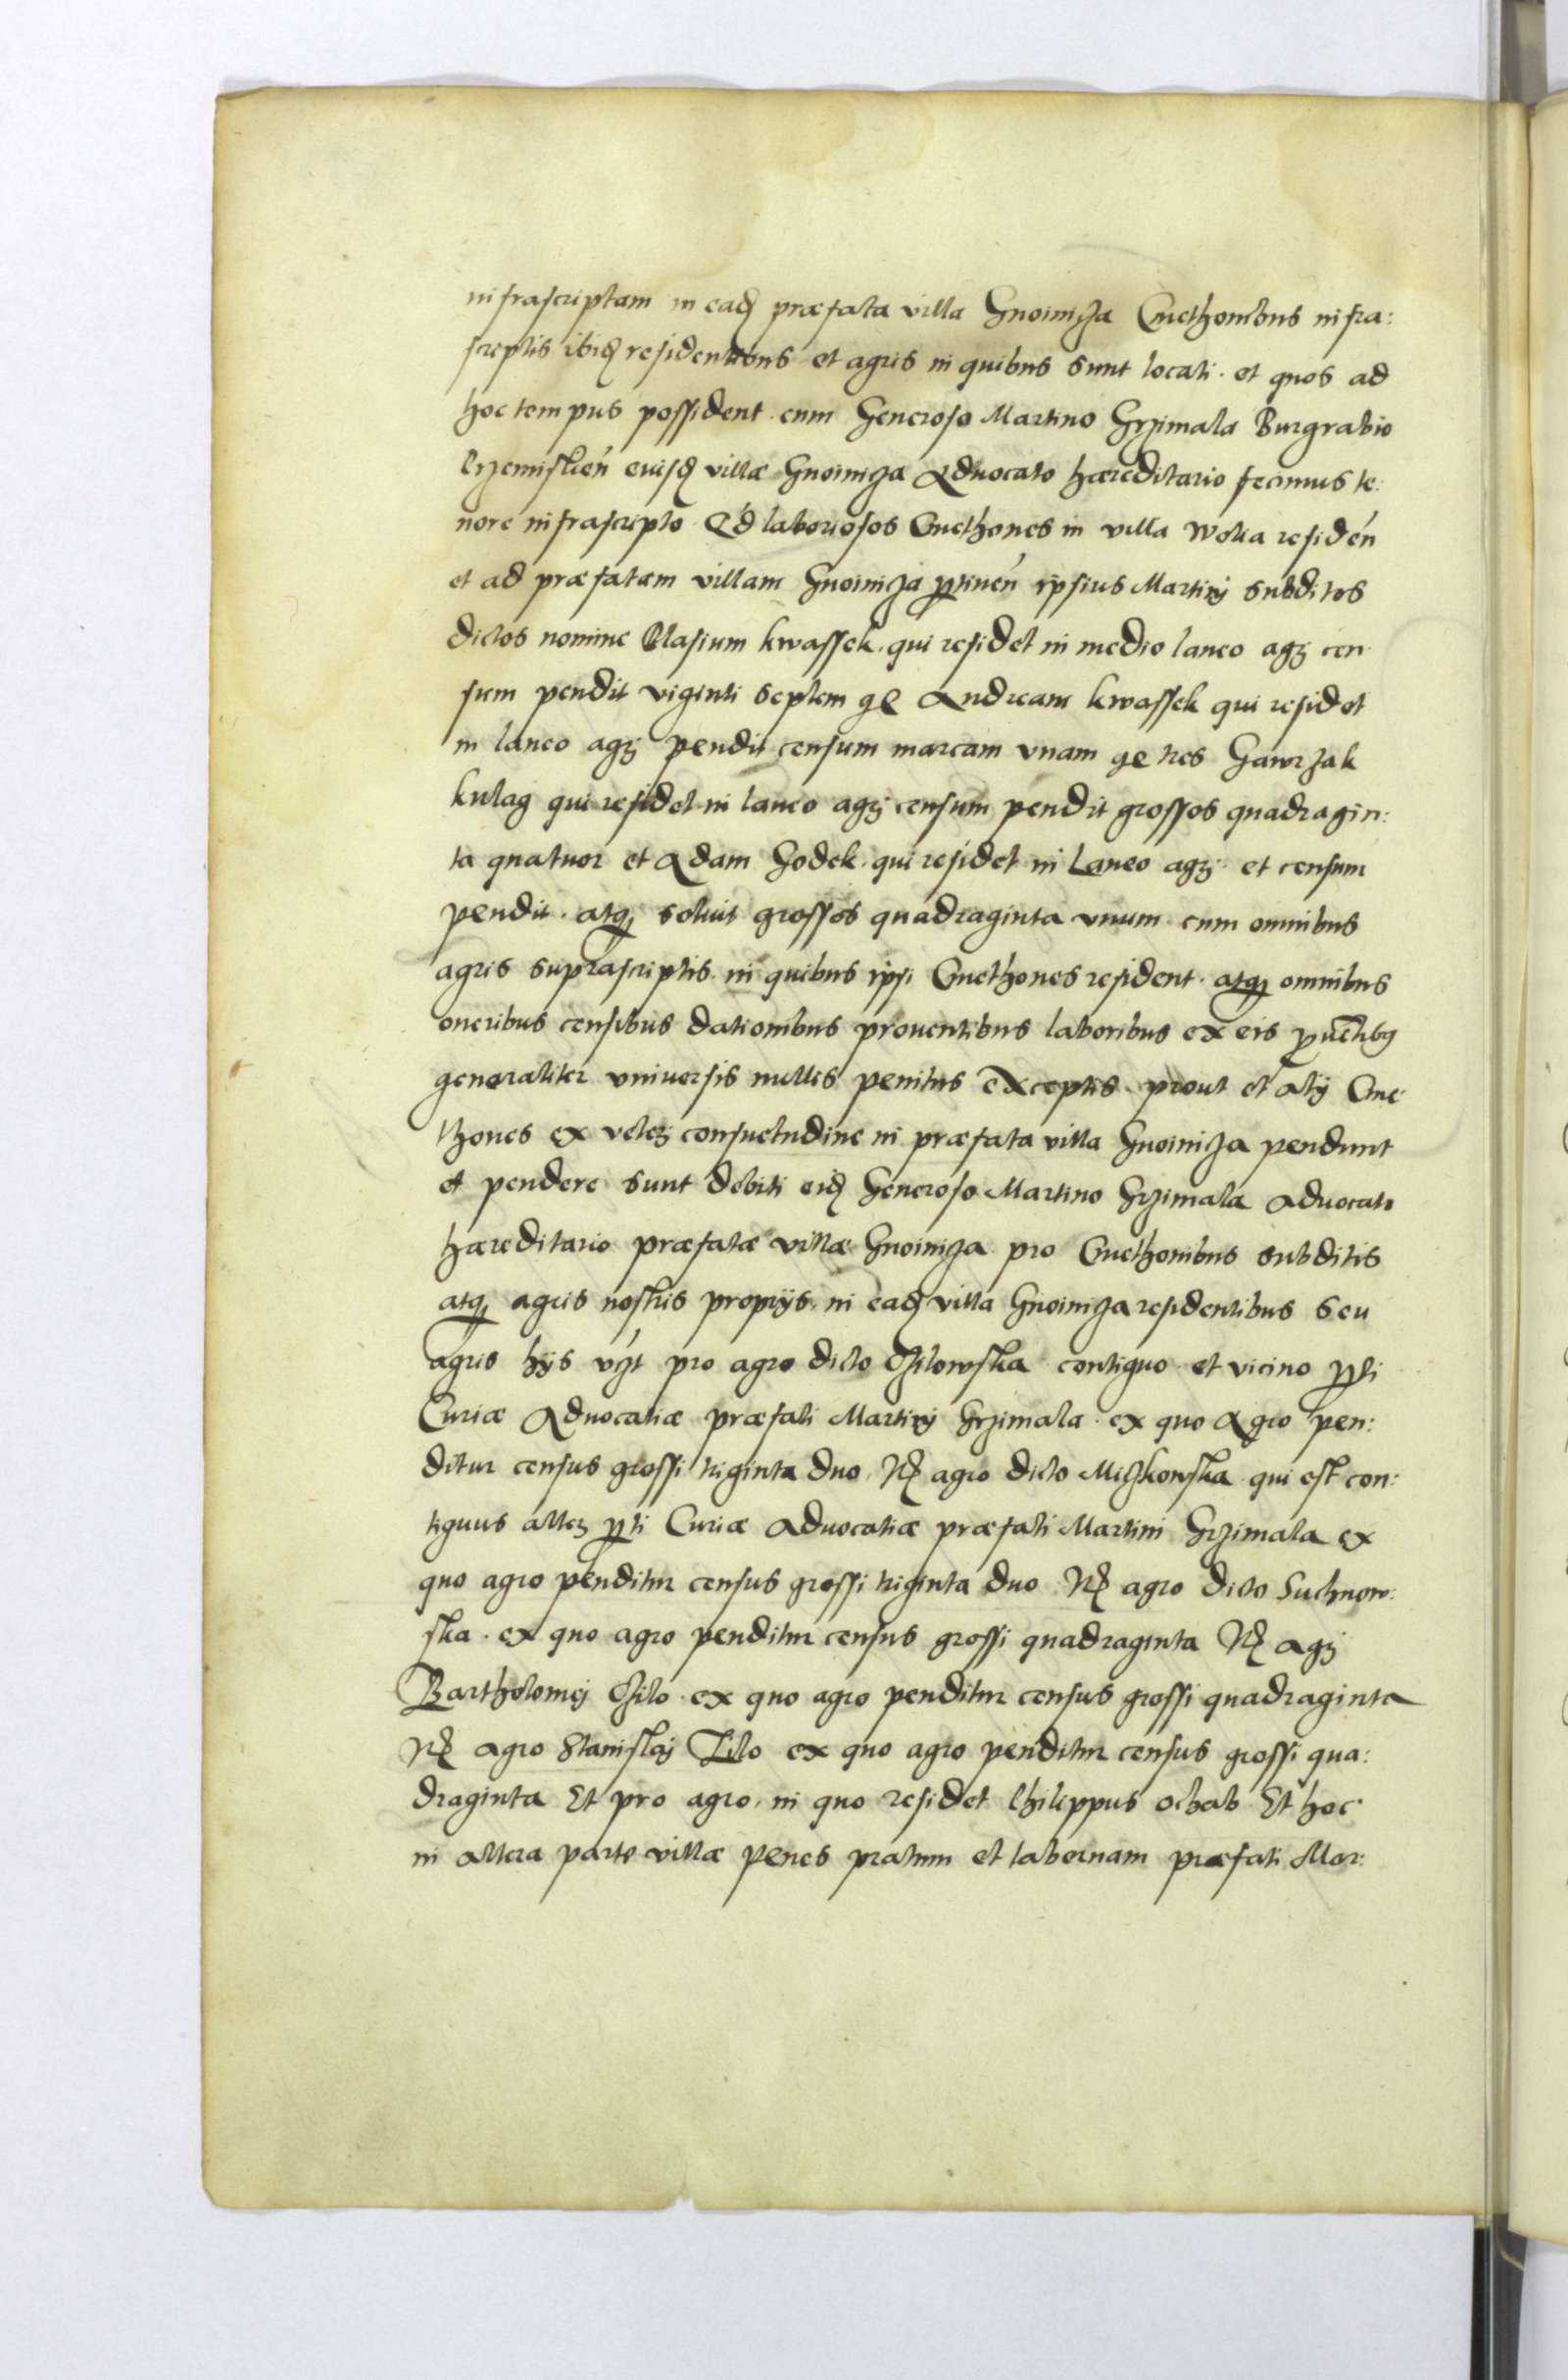 infrascriptam in eadꝫ præfata villa Gnoinicza Cmethonibus infra:
scriptis ibidꝫ residentibus et agris in quibus sunt locati. et quos ad
hoc tempus possident. cum Generoso Martino Grzimala Burgrabio
Przemislień eiusdꝫ villæ Gnoinicza Aduocato hæreditario fecimus te:
nore infrascripto Qd laboriosos Cmethones in villa Wolia residén
et ad præfatam villam Gnoinicza ꝑtinén ipsius Martinj subditos
dictos nomine Blasium kwassek. qui residet in medio laneo agrj cen
sum pendit viginti septem gr Andream kwassek qui residet
in laneo agrj pendit censum marcam vnam gr tres Gawrzak
kulag qui residet in laneo agrj censum pendit grossos quadragin:
ta quatuor et Adam Godek. qui residet in Laneo agrj. et censum
pendit. atqꝫ soluit grossos quadraginta vnum. cum omnibus
agris suprascriptis. in quibus ipsi Cmethones resident. atqꝫ omnibus
oneribus censibus dationibus prouentibus laboribus ex eis
generaliter vniuersis nullis penitus exceptis. prout et alij Cme
thones ex veterj consuetudine in præfata villa Gnoinicza pendunt
et pendere sunt debiti eidꝫ Generoso Martino Grzimala Aduocato
hæreditario præfatæ villæ Gnoinicza pro Cmethonibus subditis
atqꝫ agris nostris proprijs. in eadꝫ villa Gnoinicza residentibus seu
agris hijs vꝫt pro agro dicto Czilowska contiguo et vicino ꝑti
Curiæ Aduocatiæ præfati Martinj Grzimala. ex quo Agro pen:
ditur census grossi triginta duo. Itꝫ agro dicto Miczkowska qui est con:
tiguus alterj ꝑti Curiæ Aduocatiæ præfati Martini Grzimala ex
quo agro penditur census grossi triginta duo. Itꝫ agro dicto Suchnow:
ska. ex quo agro penditur census grossi quadraginta Itꝫ agrj
Bartholomej Czilo. ex quo agro penditur census grossi quadraginta
Itꝫ agro Stanislaj Czilo ex quo agro penditur census grossi qua:
draginta Et pro agro. in quo residet Philippus ochab Et hoc
in altera parte villæ penes pratum et tabernam præfati Mar: